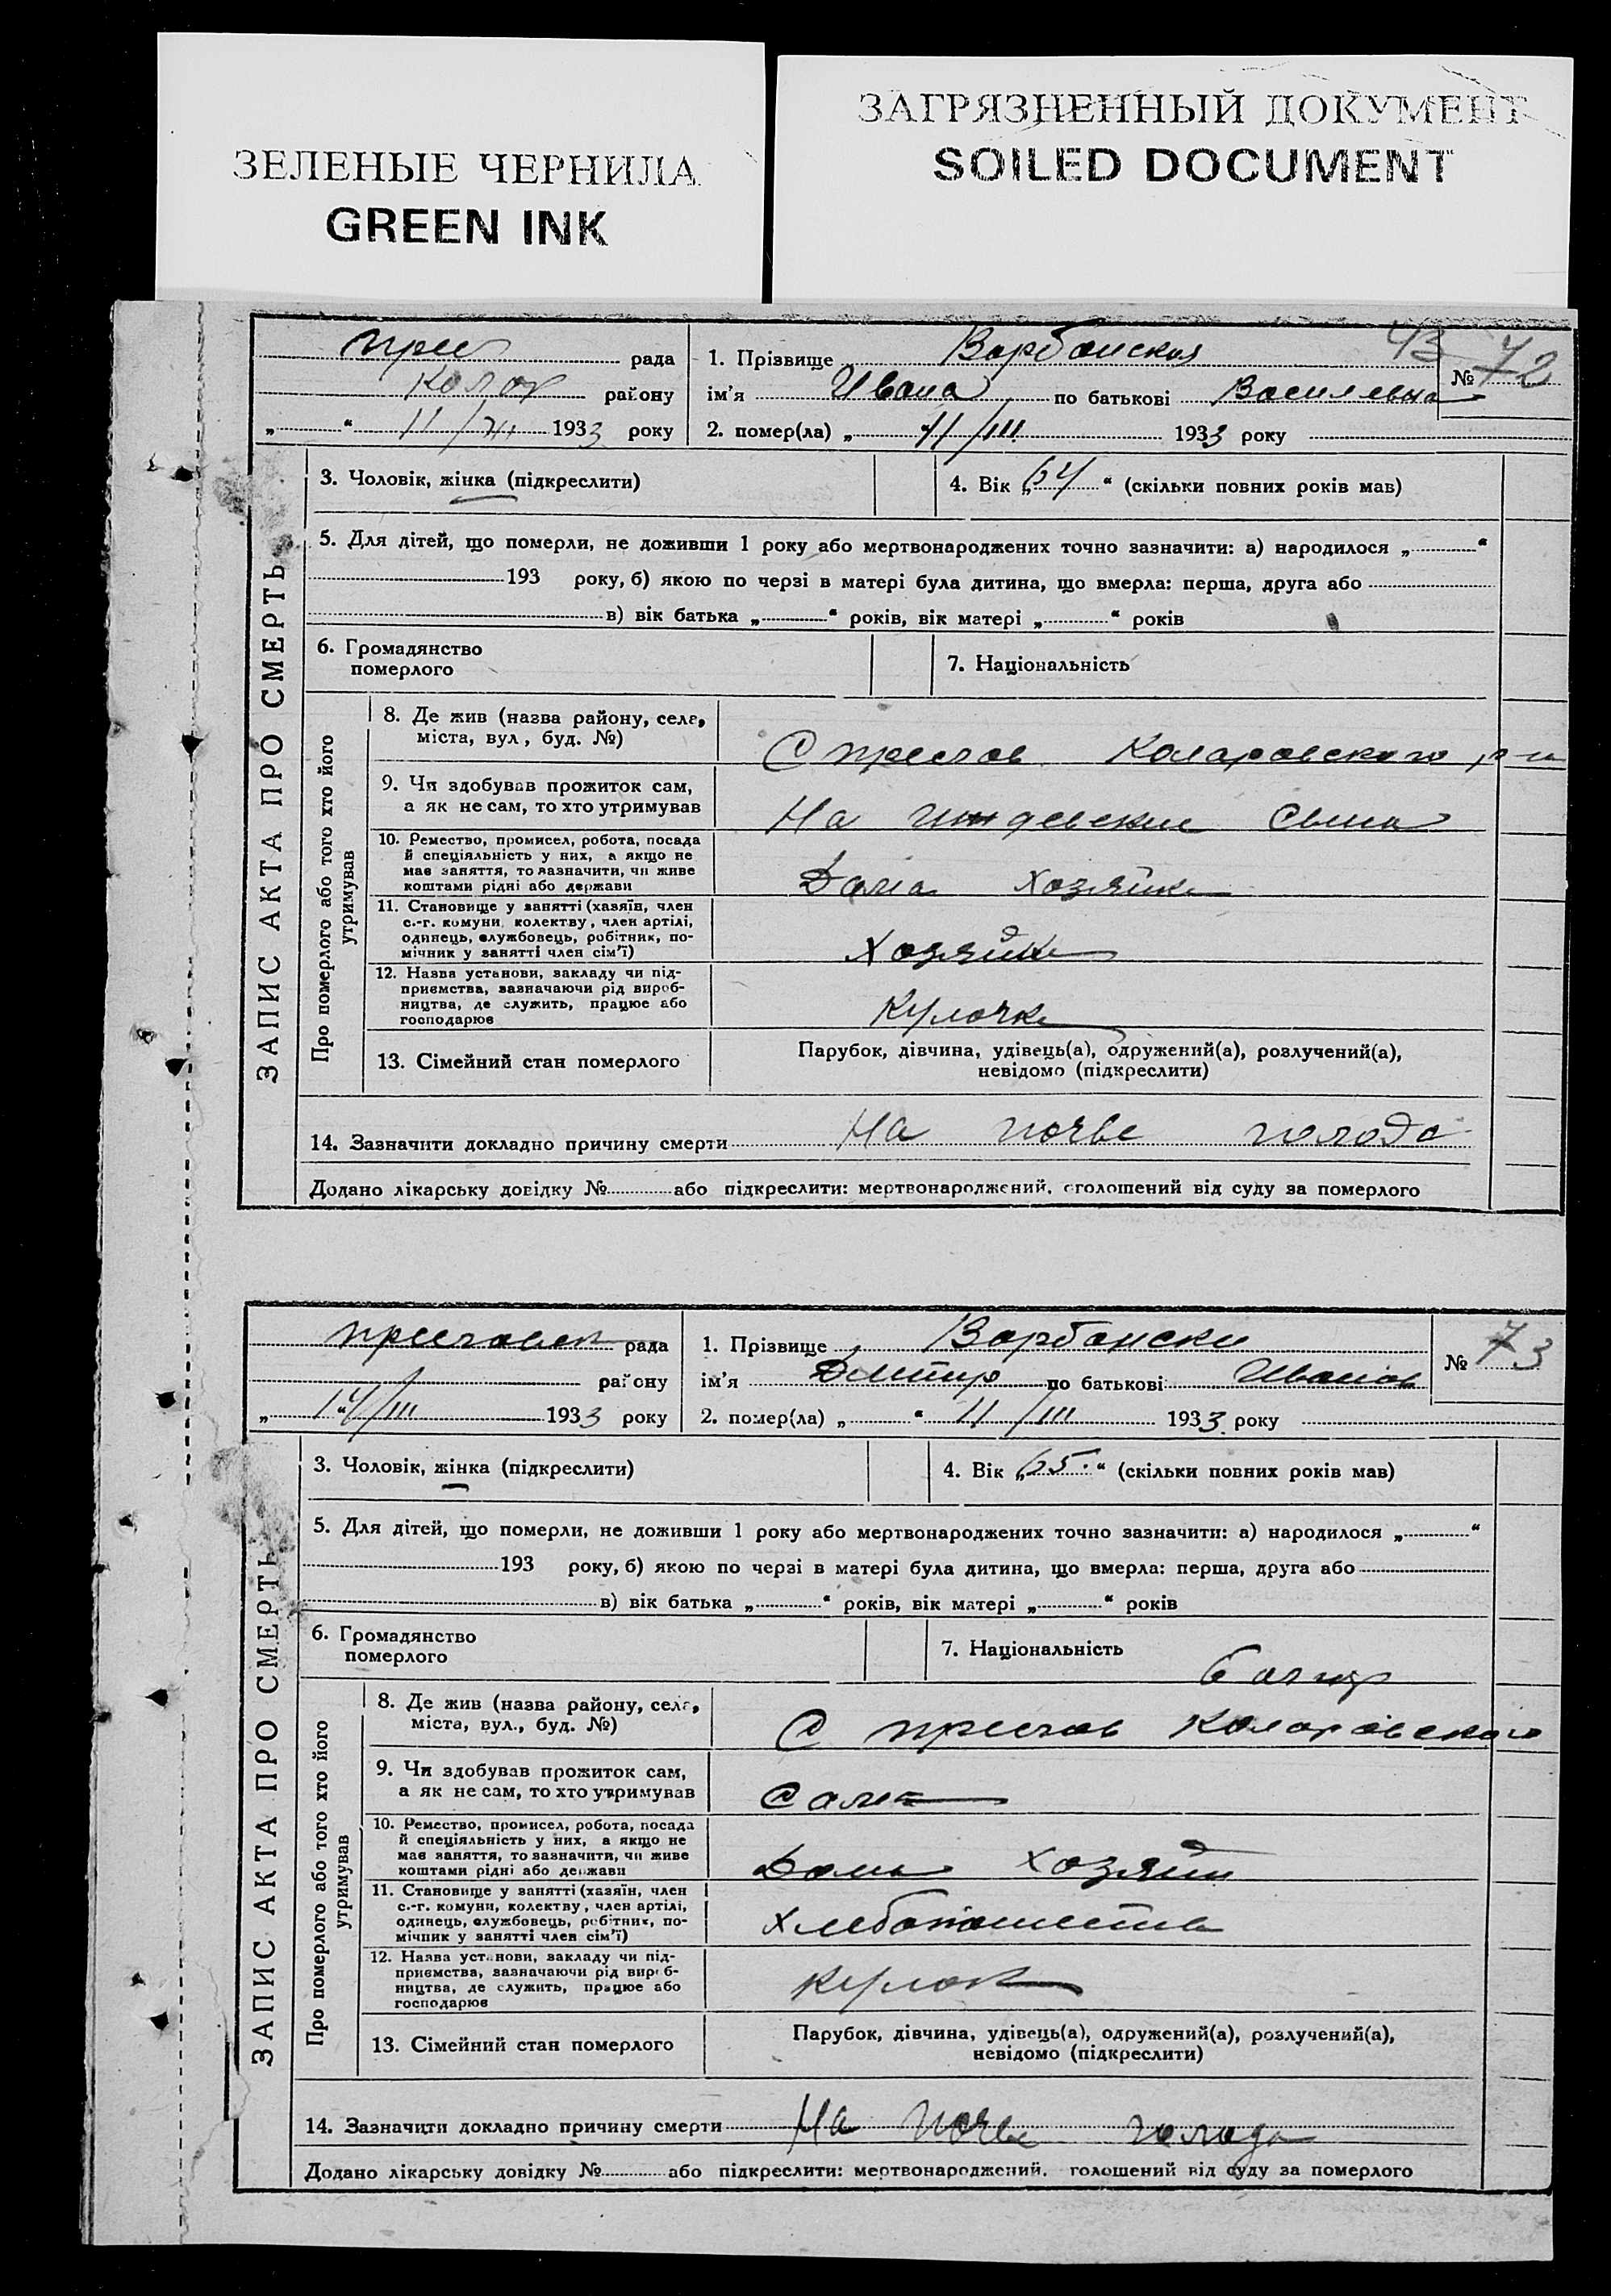 ЗЕЛЕНЫЕ ЧЕРНИЛА
GREEN INK
ЗАГРЯЗНЕННЫЙ ДОКУМЕНТ
SOILED DOCUMENT
43
ЗАПИС АКТА ПРО СМЕРТЬ
рада
Колар району
„ “ 11/III 1933 року
1. Прізвище Варбанская
№ 72
ім'я Ивана по батькові Василевна
2. помер(ла) „ 11/III 1933 року
3. Чоловік, жінка (підкреслити)
4. Вік „64“ (скільки повних років мав)
5. Для дітей, що померли, не доживши 1 року або мертвонароджених точно зазначити: а) народилося „ “
193 року, б) якою по черзі в матері була дитина, що вмерла: перша, друга або
в) вік батька „ “ років, вік матері „ “ років
6. Громадянство
померлого
7. Національність
Про померлого або того хто його
утримував
8. Де жив (назва району, села,
міста, вул, буд. №)
С Преслав Коларовского р-на
9. Чи здобував прожиток сам,
а як не сам, то хто утримував
На иждевение Сына
10. Ремество, промисел, робота, посада
й спеціяльність у них, а якщо не
має заняття, то зазначити, чи живе
коштами рідні або держави
Дома хозяйка
11. Становище у занятті (хазяїн, член
с.-г. комуни, колективу, член артілі,
одинець, службовець, робітник, по-
мічник у занятті член сім'ї)
Хозяйка
12. Назва установи, закладу чи під-
приємства, зазначаючи рід вироб-
ництва, де служить, працює або
господарює
Кулачка
13. Сімейний стан померлого
Парубок, дівчина, удівець(а), одружений(а), розлучений(а),
невідомо (підкреслити)
14. Зазначити докладно причину смерти На почве голода
Додано лікарську довідку № або підкреслити: мертвонароджений, оголошений від суду за померлого
ЗАПИС АКТА ПРО СМЕРТЬ
рада
району
„14“/III 1933 року
1. Прізвище Варбански
№ 73
ім'я Дмитир по батькові Иванов
2. помер(ла) „ “ 11/III 1933 року
3. Чоловік, жінка (підкреслити)
4. Вік „65“ (скільки повних років мав)
5. Для дітей, що померли, не доживши 1 року або мертвонароджених точно зазначити: а) народилося „ “
193 року, б) якою по черзі в матері була дитина, що вмерла: перша, друга або
в) вік батька „ “ років, вік матері „ “ років
6. Громадянство
померлого
7. Національність
Про померлого або того хто його
утримував
8. Де жив (назва району, села,
міста, вул., буд. №)
С Преслав Коларовского
9. Чи здобував прожиток сам,
а як не сам, то хто утримував
Сам
10. Ремество, промисел, робота, посада
й спеціяльність у них, а якщо не
має заняття, то зазначити, чи живе
коштами рідні або держави
Дома хозяин
11. Становище у занятті (хазяїн, член
с.-г. комуни, колективу, член артілі,
одинець, службовець, робітник, по-
мічник у занятті член сім'ї)
12. Назва установи, закладу чи під-
приємства, зазначаючи рід вироб-
ництва, де служить, працює або
господарює
кулак
13. Сімейний стан померлого
Парубок, дівчина, удівець(а), одружений(а), розлучений(а),
невідомо (підкреслити)
14. Зазначити докладно причину смерти На почве голода
Додано лікарську довідку № або підкреслити: мертвонароджений, голошений від суду за померлого